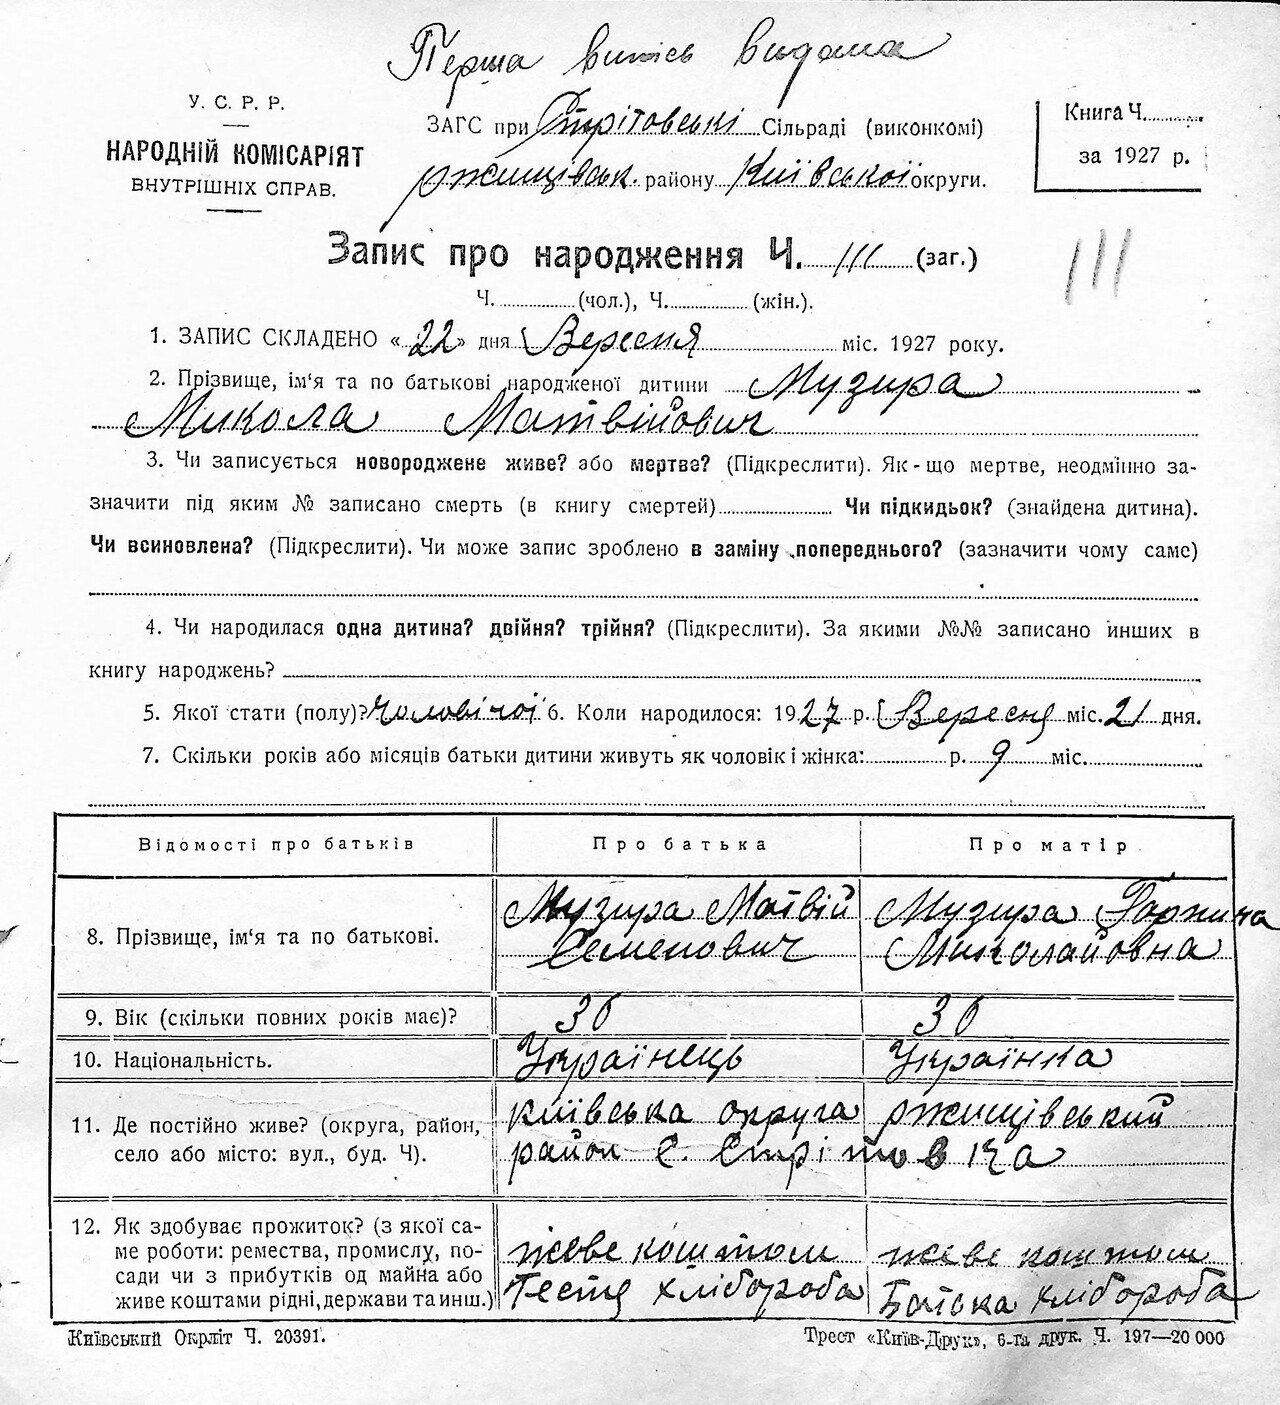 Перша випись видана
У. С. Р. Р.
НАРОДНІЙ КОМІСАРІЯТ
ВНУТРІШНІХ СПРАВ.
ЗАГС при Стрітовські Сільраді (виконкомі)
ржищівськ. району Київської округи.
Книга Ч.
за 1927 р.
Запис про народження Ч. 111 (заг.)
111
Ч. (чол.), Ч. (жін.).
1. ЗАПИС СКЛАДЕНО «22» дня Вересня міс. 1927 року.
2. Прізвище, ім‘я та по батькові народженої дитини Музира
Микола Матвійович
3. Чи записується новороджене живе? або мертве? (Підкреслити). Як-що мертве, неодмінно за-
значити під яким № записано смерть (в книгу смертей) Чи підкидьок? (знайдена дитина).
Чи всиновлена? (Підкреслити). Чи може запис зроблено в заміну попереднього? (зазначити чому саме)
4. Чи народилася одна дитина? двійня? трійня? (Підкреслити). За якими №№ записано инших в
книгу народжень?
5. Якої стати (полу)? Чоловічої 6. Коли народилося: 1927 р. Вересня міс. 21 дня.
7. Скільки років або місяців батьки дитини живуть як чоловік і жінка: р. 9 міс.
Відомості про батьків Про батька Про матір
8. Прізвище, ім‘я та по батькові.
Музира Матвій
Семенович
Музира
Миколайовна
9. Вік (скільки повних років має)? 36 36
10. Національність. Українець Українка
11. Де постійно живе? (округа, район,
село або місто: вул., буд. Ч).
київська округа ржищівський
район С. Стрітовка
12. Як здобуває прожиток? (з якої са-
ме роботи: ремества, промислу, по-
сади чи з прибутків од майна або
живе коштами рідні, держави та инш.)
живе коштом
Тестя хлібороба
живе коштом
Батька хлібороба
Київський Окрліт Ч. 20391.
Трест «Київ-Друк», 6-га друк. Ч. 197—20 000